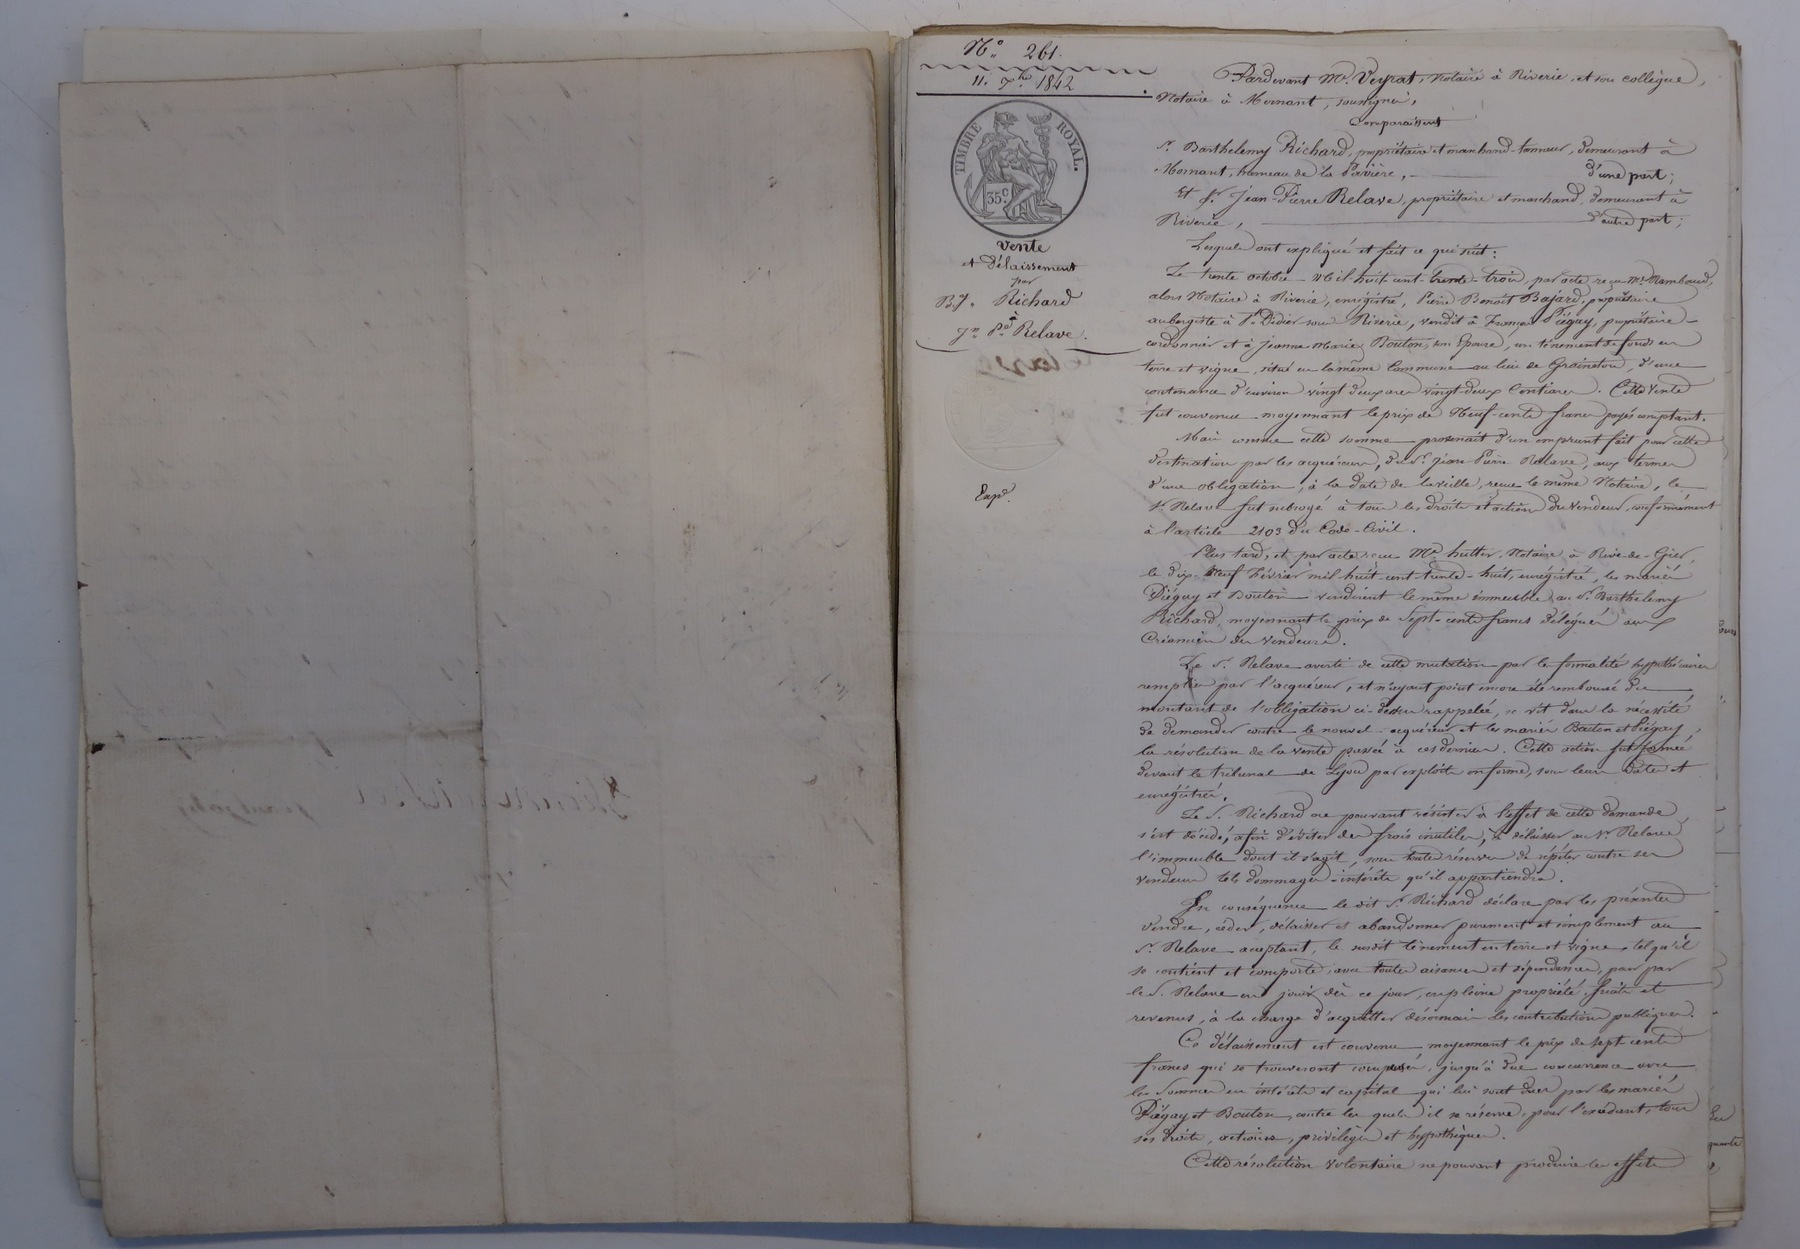 N.º 261.
11. 7.bre 1842
TIMBRE ROYAL.
35.C
Vente
et Délaissement
par
B.y. Richard
à
J.n P.re Relave.
Exp.
Pardevant M.e Veyrat, Notaire à Riverie, et son collègue,
Notaire à Mornant, soussignés,
Comparaissent
S.r Barthelemy Richard, propriétaire et marchand-tanneur, demeurant à
Mornant, hameau de la d'une part;
Et S.r Jean-Pierre Relave, propriétaire et marchand, demeurant à
Riverie, d'autre part;
Lesquels ont expliqué et fait ce qui suit:
Le trente octobre Mil huit-cent-trente-trois, par acte reçu M.e Rambaud,
alors Notaire à Riverie, enregistré, Pierre Benoit Bajard, propriétaire
aubergiste à S.t Didier sous Riverie, vendit à François Piégay, propriétaire
cordonnier et à Jeanne Marie Bouton, son Epouse, un ténement de fonds en
terre et vigne, situé en la même Commune au lieu de d'une
contenance d'environ vingt deux ares vingt-deux Centiares. Cette Vente
fut convenue moyennant le prix de Neuf-cents francs payés comptant.
Mais comme cette somme provenait d'un emprunt fait pour cette
destination par les acquéreurs, du S.r Jean Pierre Relave, aux termes
d'une obligation, à la date de la veille, reçue le même Notaire, le
S.r Relave fut subrogé à tous les droits et actions du Vendeur, conformément
à l'article 2103 du Code-Civil.
Plus tard, et par acte reçu M.e hutter, Notaire à Rive-de-Gier,
le dix-Neuf Février mil huit-cent-trente-huit, enregistré, les mariés
Piégay et Bouton vendirent le même immeuble au S.r Barthelemy
Richard, moyennant le prix de Sept-cents francs délégués aux
Créanciers des Vendeurs.
Le S.r Relave averti de cette mutation par les formalités hypothécaires
remplies par l'acquéreur, et n'ayant point encore été remboursé du
montant de l'obligation ci-dessus rappelée, se vit dans la nécessité
de demander contre le nouvel acquéreur et les mariés Bouton et Piégay,
la résolution de la vente passée à ces derniers. Cette action fut formée
devant le tribunal de Lyon par exploits en forme, sous leurs Dates et
enregistrés.
Le S.r Richard ne pouvant résister à l'effet de cette demande
s'est décidé, afin d'éviter des frais inutiles, à délaisser au S.r Relave
l'immeuble dont il s'agit, sous toutes réserves de répéter contre ses
Vendeurs tels dommages-intérêts qu'il appartiendra.
En conséquence le dit S.r Richard déclare par les présentes
Vendre, céder, délaisser et abandonner purement et simplement au
S.r Relave acceptant, le susdit ténement en terre et vigne, tel qu'il
se contient et comporte, avec toutes aisances et dépendances, pour par
le S.r Relave en jouir dès ce jour, en pleine propriété, fruits et
revenus, à la charge d'acquitter désormais les contributions publiques.
Ce délaissement est convenu moyennant le prix de Sept cents
francs qui se trouveront compensés, jusqu'à due concurrence avec
les Sommes en intérêts et capital qui lui sont dues par les mariés
Piégay et Bouton, contre les quels il se réserve, pour l'excédant, tous
ses droits, actions, privilèges et hypothèques.
Cette résolution volontaire ne pouvant produire les effets